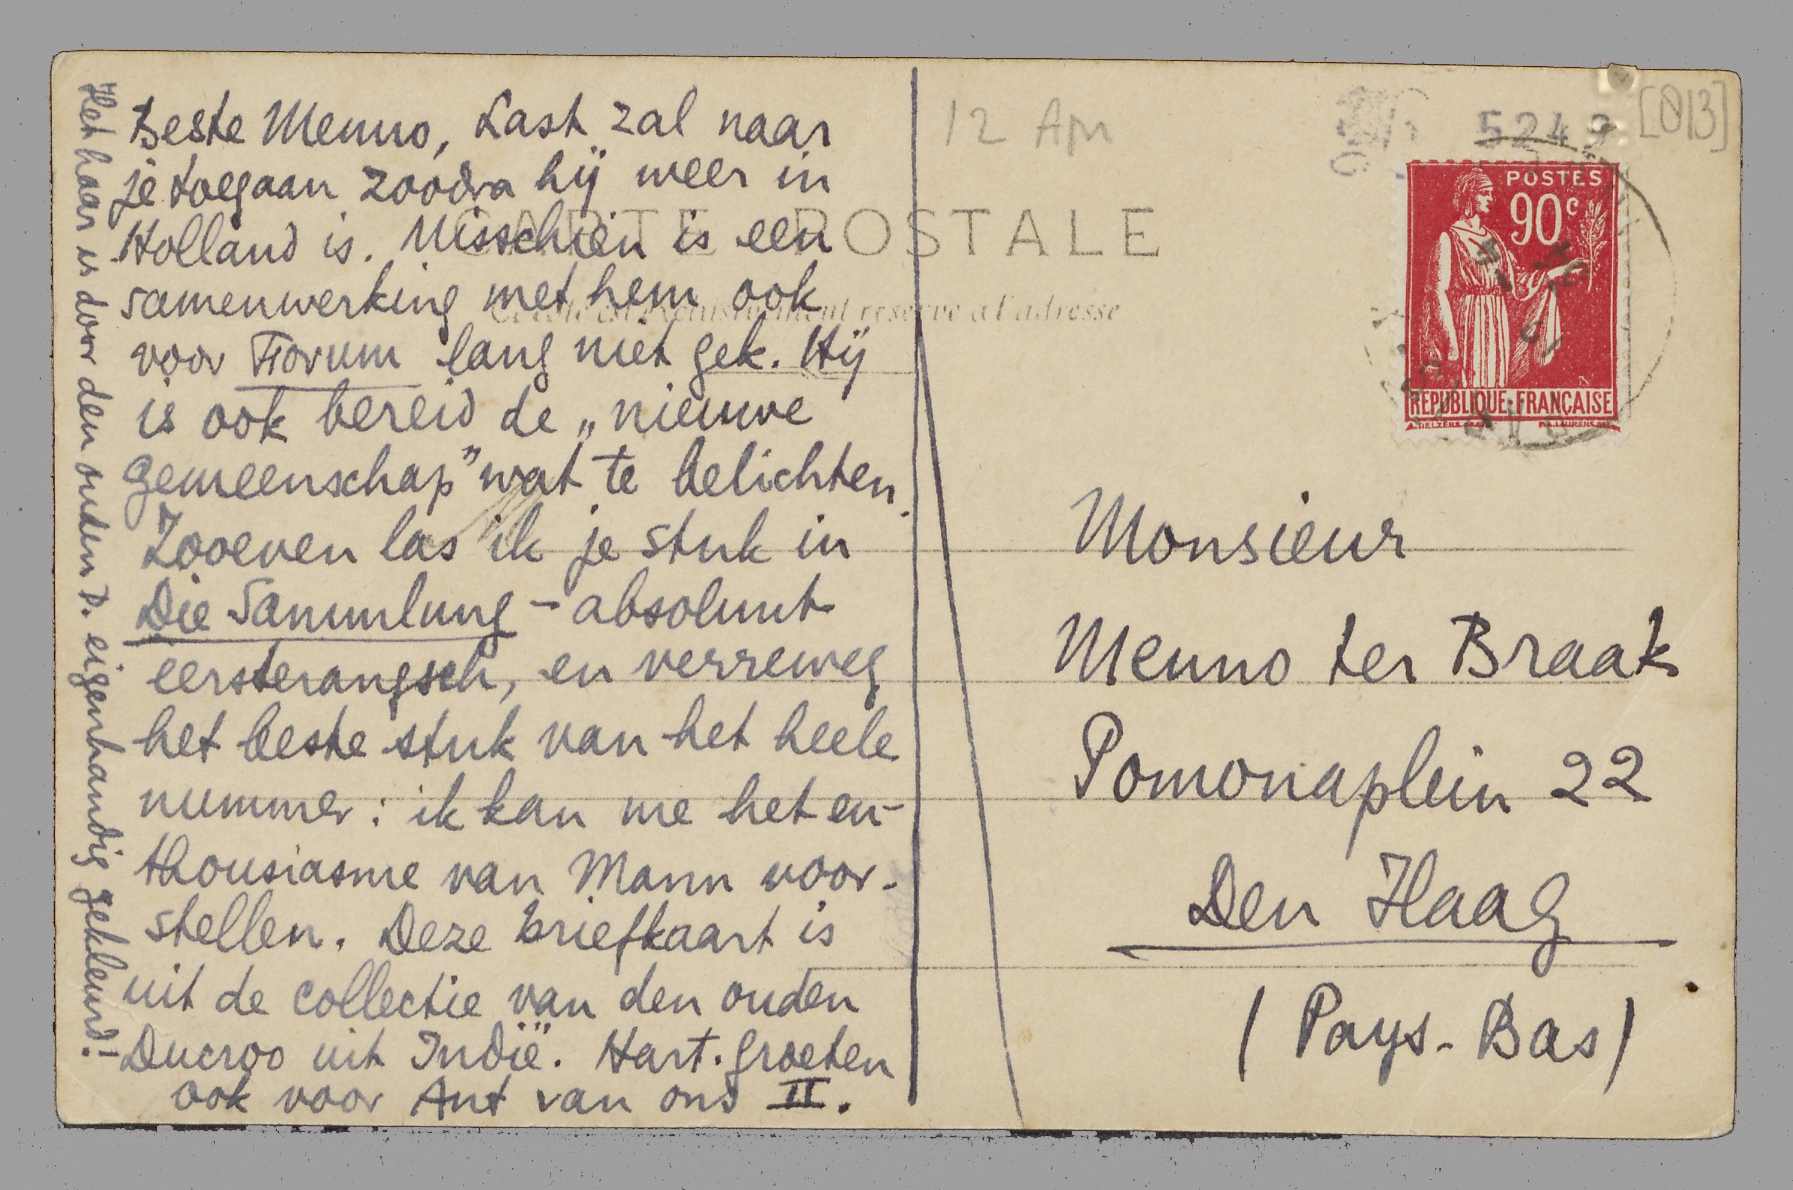 Beste Menno, Last zal naar
je toegaan zoodra hij weer in
Holland is. Misschien is een
samenwerking met hem ook
voor Forum lang niet gek. Hij
is ook bereid de „nieuwe
gemeenschap” wat te belichten.
Zooeven las ik je stuk in
Die Sammlung – absoluut
eersterangsch, en verreweg
het beste stuk van het heele
nummer: ik kan me het en-
thousiasme van Mann voor-
stellen. Deze briefkaart is
uit de collectie van den ouden
Ducroo uit Indië. Hart. groeten
ook voor Ant van ons II.
Het haar is door den ouden D. eigenhandig gekleurd!
12 Apr
5249
[813]
CARTE POSTALE
Ce côté est exclusivement réservé à l'adresse
POSTES
90c
REPUBLIQUE FRANÇAISE
Monsieur
Menno ter Braak
Pomonaplein 22
Den Haag
(Pays-Bas)